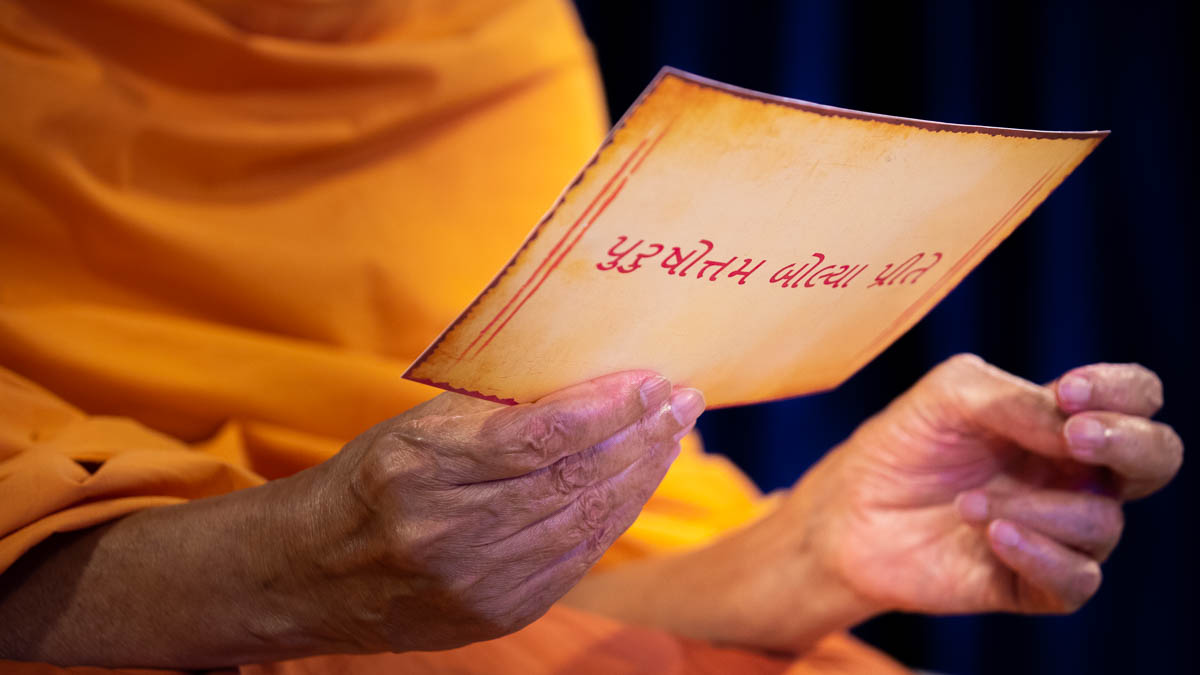 પુરુષોત્તમ બોલ્યા પ્રીતે